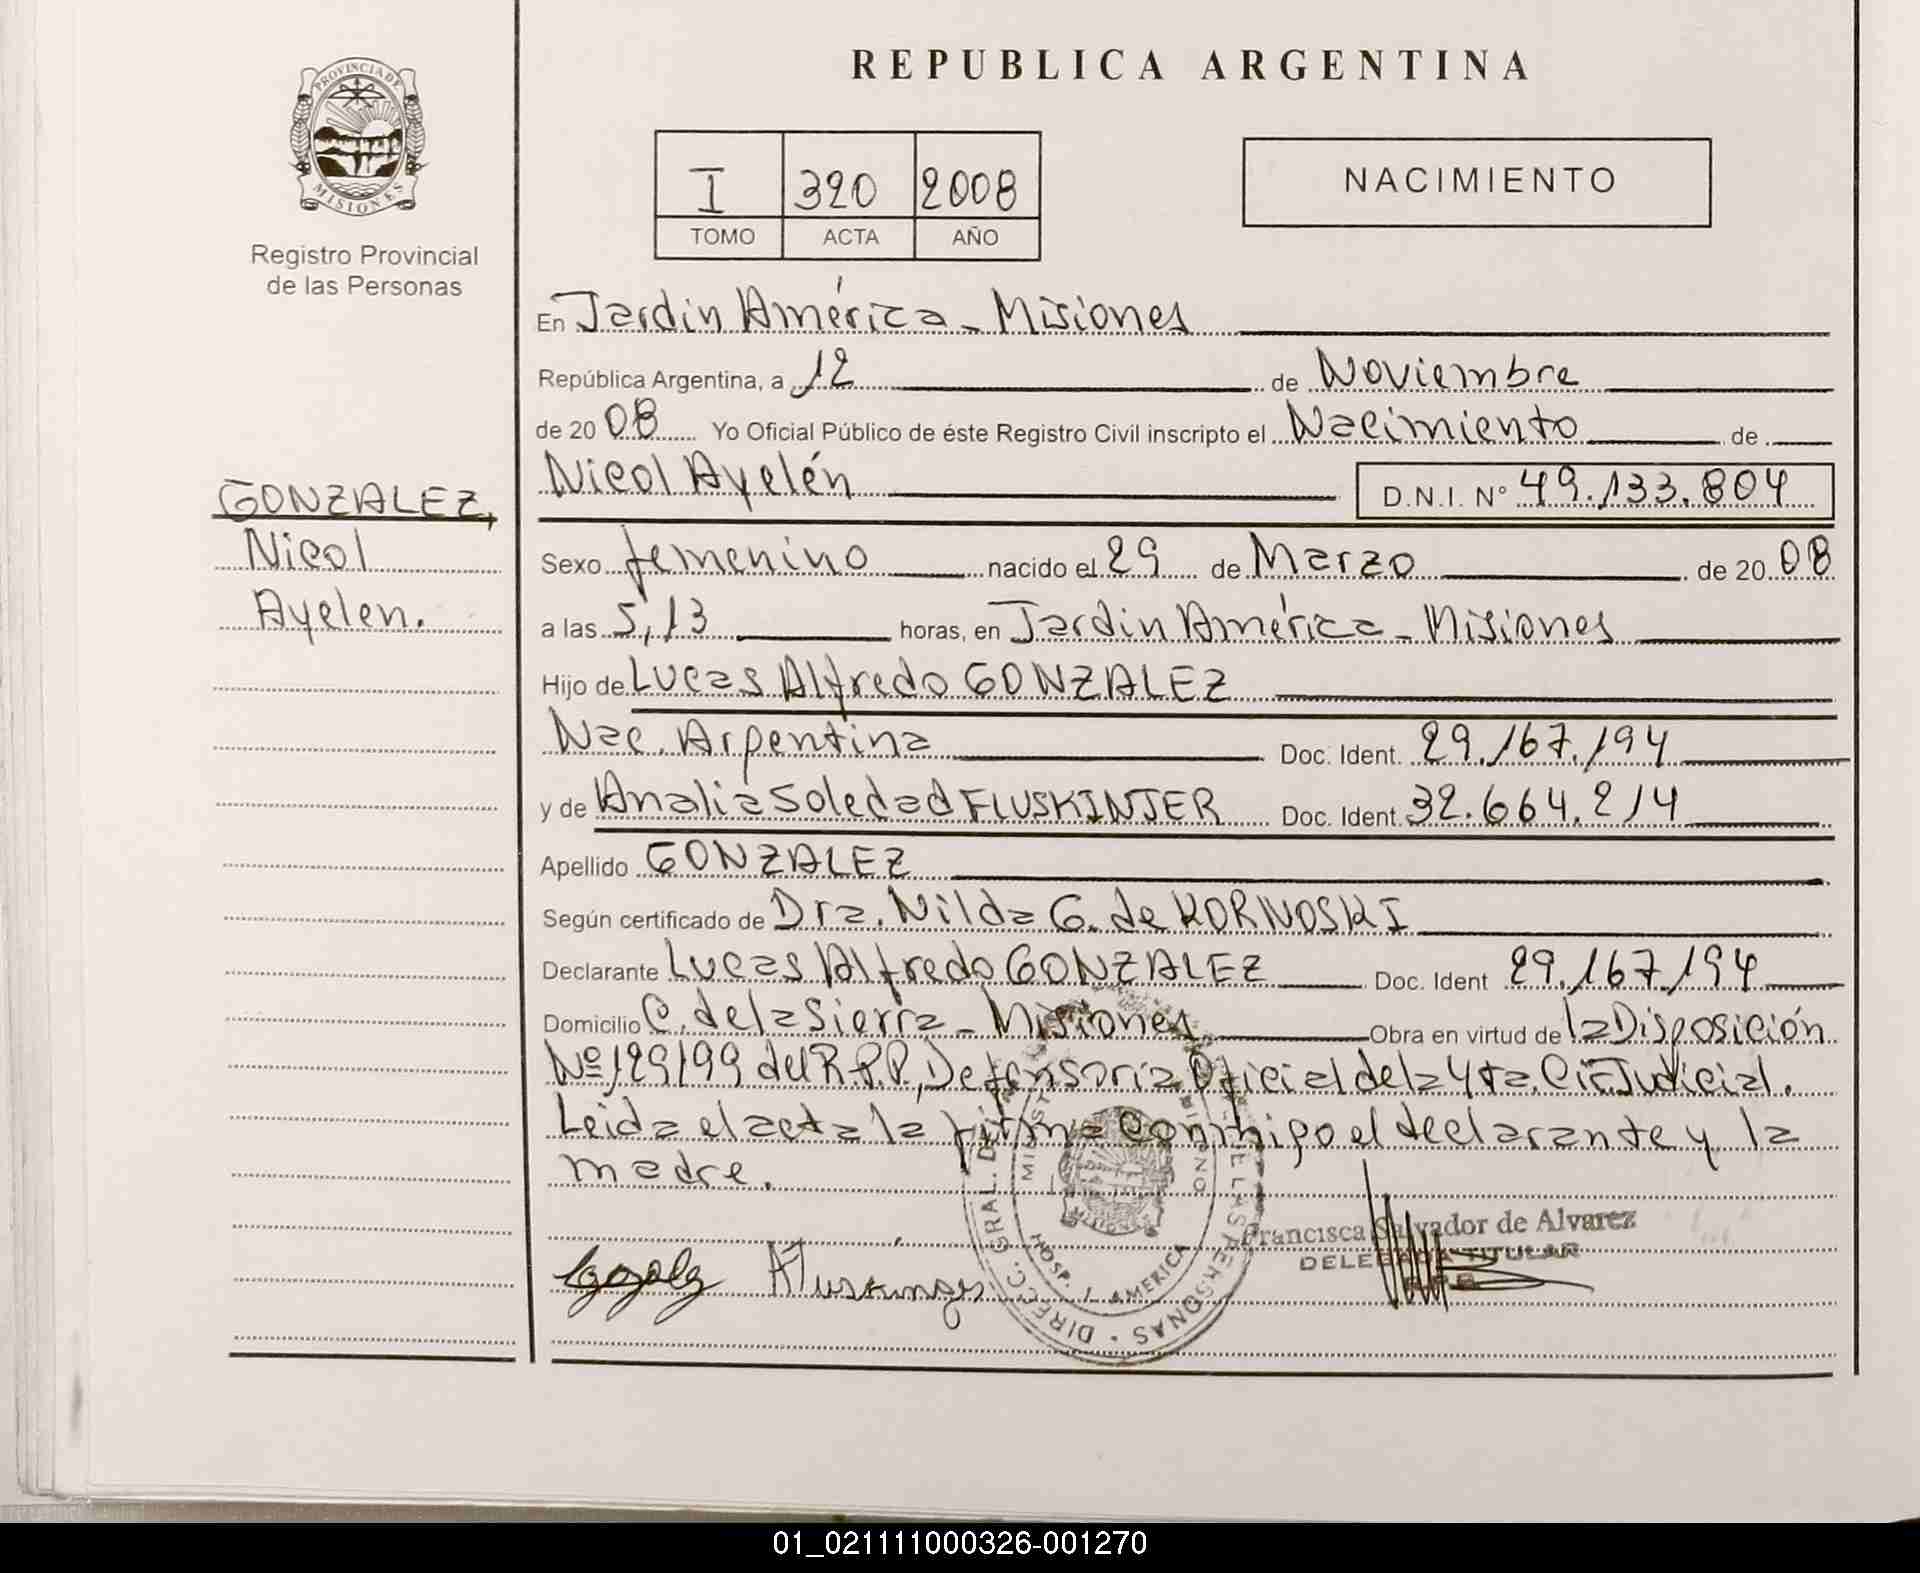 REPUBLICA ARGENTINA
PROVINCIA DE
MISIONES
Registro Provincial
de las Personas
I 320 2008
TOMO ACTA AÑO
NACIMIENTO
En Jardin América - Misiones
República Argentina, a 12 de Noviembre
de 2008 Yo Oficial Público de éste Registro Civil inscripto el Nacimiento de
Nicol Ayelén D.N.I. Nº 49.133.804
GONZALEZ,
Nicol
Ayelen.
Sexo femenino nacido el 29 de Marzo de 2008
a las 5,13 horas, en Jardin América - Misiones
Hijo de Lucas Alfredo GONZALEZ
Nac. Argentina Doc. Ident. 29.167.194
y de Analia Soledad FLUSKINJER Doc. Ident. 32.664.214
Apellido GONZALEZ
Según certificado de Dra. Nilda G. de KORNOSKI
Declarante Lucas Alfredo GONZALEZ Doc. Ident 29.167.194
Domicilio C. de la Sierra - Misiones Obra en virtud de la Disposición
Nº 129/99 del R.P.P, Defensoria Oficial de la 4ta. Cir. Judicial.
Leida el acta la firma conmigo el declarante y la
madre.
Francisca Salvador de Alvarez
DELEGADA TITULAR
DIREC. GRAL. D
PERSONAS
HOSP. J. AMERICA
01_021111000326-001270